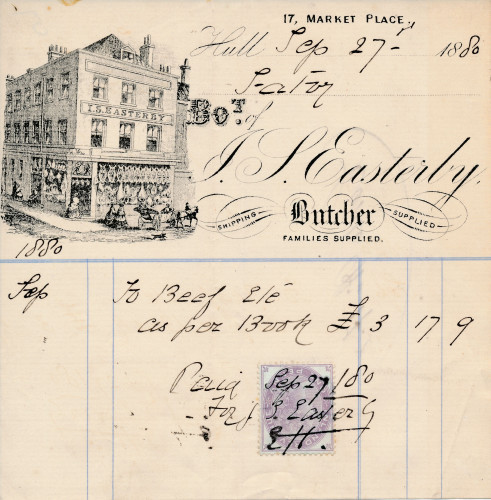 17, MARKET PLACE,
Hull Sep 27 1880
I. S. EASTERBY
Bo.T of
I. S. Easterby.
SHIPPING Butcher SUPPLIED
FAMILIES SUPPLIED.
1880
Sep To Beef Etc
as per Book £ 3 17 9
Paid Sep 27/80
For J S. Easterby
EH.